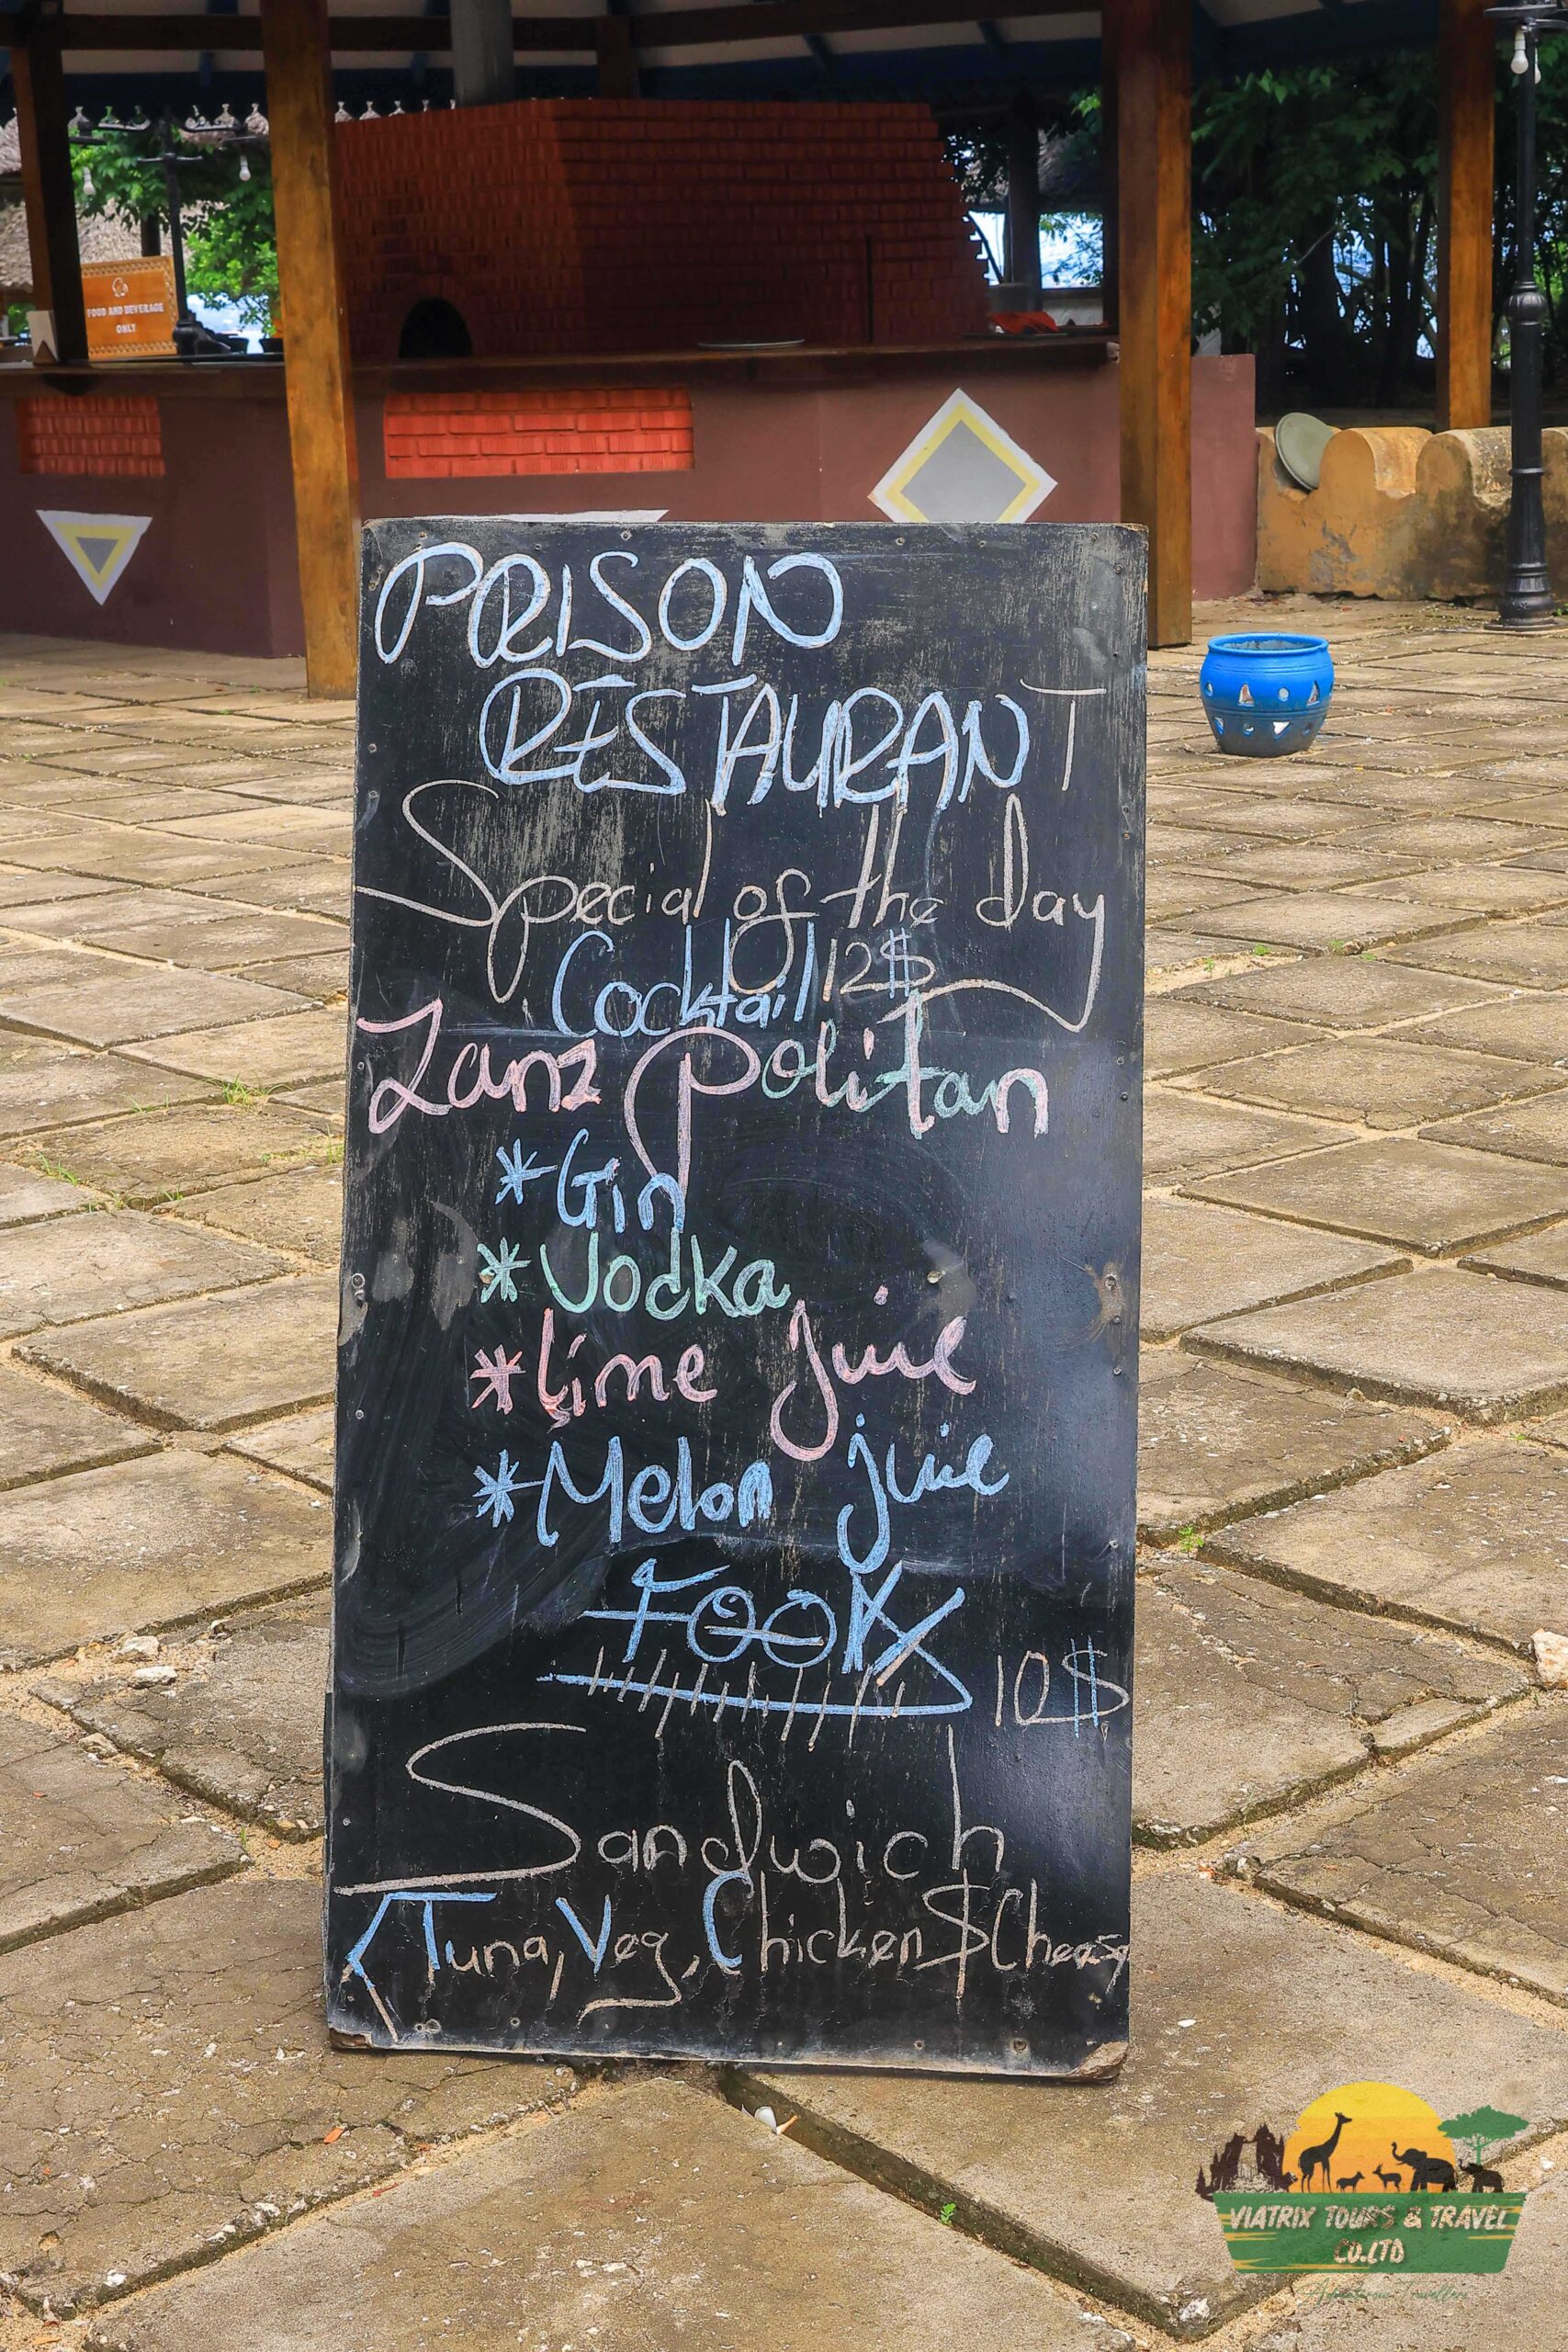 FOOD AND BEVERAGE
ONLY
PRISON
RESTAURANT
Special of the day
Cocktail 12$
Zanz politan
*Gin
*Vodka
*lime juice
*Melon juice
FOOD
10$
Sandwich
(Tuna, Veg, Chicken $ Cheese
VIATRIX TOURS & TRAVEL
CO.LTD